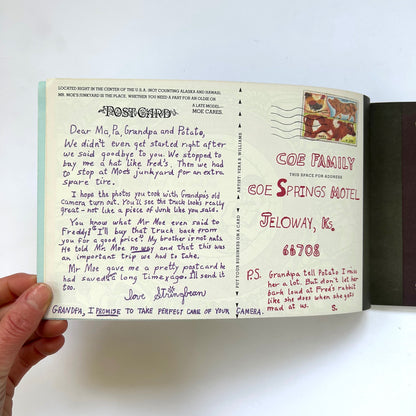 LOCATED RIGHT IN THE CENTER OF THE U.S.A. (NOT COUNTING ALASKA AND HAWAII),
MR. MOE'S JUNKYARD IS THE PLACE, WHETHER YOU NEED A PART FOR AN OLDIE OR
A LATE MODEL—
MOE CARES.
POST CARD
Dear Ma, Pa, Grandpa and Potato,
We didn't even get started right after
we said goodbye to you. We stopped to
buy me a hat like Fred's. Then we had
to stop at Moe's junkyard for an extra
spare tire.
I hope the photos you took with Grandpa's old
camera turn out. You'll see the truck looks really
great - not like a piece of junk like you said.
You know what Mr Moe even said to
Freddy? "I'll buy that truck back from
you for a good price." My brother is not nuts.
He told Mr. Moe no way and that this was
an important trip we had to take.
Mr Moe gave me a pretty postcard he
had saved a long time ago. I'll send it
too.
love Stringbean
GRANDPA, I PROMISE TO TAKE PERFECT CARE OF YOUR CAMERA.
ARTIST: VERA B. WILLIAMS
PUT YOUR BUSINESS ON A CARD
COE FAMILY
THIS SPACE FOR ADDRESS
COE SPRINGS MOTEL
JELOWAY, Ks.
66708
P.S. Grandpa tell Potato I miss
her a lot. But don't let her
bark loud at Fred's rabbit
like she does when she gets
mad at us. S.